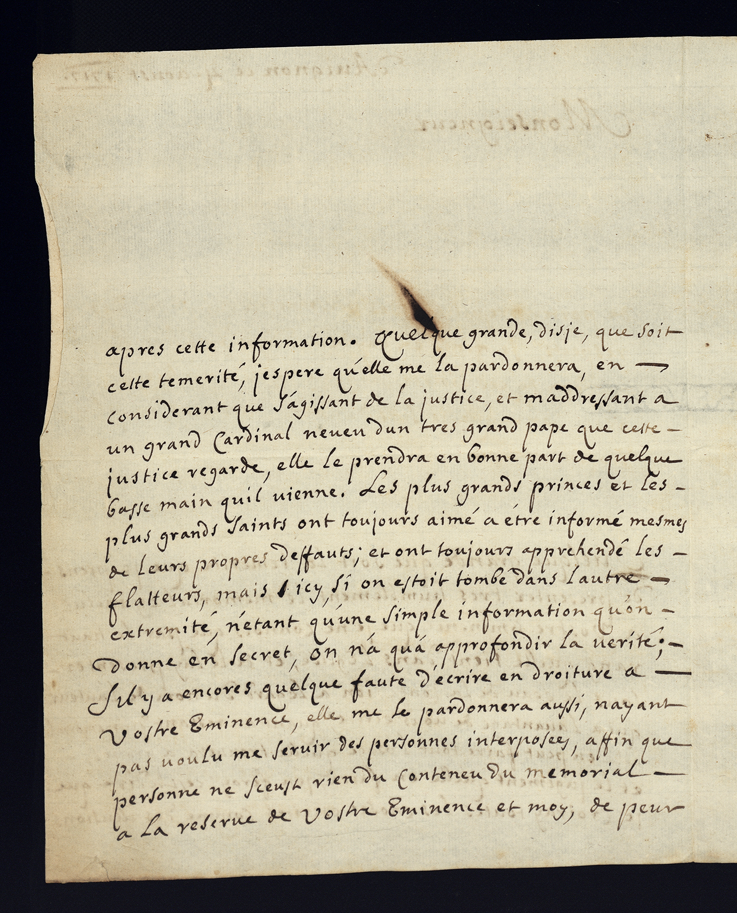 apres cette information. Quelque grande, disje, que soit
cette temerité, jespere qu'elle me la pardonnera, en —
considerant que s'agissant de la justice, et maddressant a
un grand Cardinal neveu dun tres grand pape que cette –
justice regarde, elle le prendra en bonne part de quelque
basse main quil vienne. Les plus grands princes et les –
plus grands saints ont toujours aimé a étre informé mesmes
de leurs propres deffauts; et ont toujours apprehendé les –
flatteurs, mais icy, si on estoit tombé dans lautre –
extremité, n'étant qu'une simple information qu'on –
donne en secret, on n'a qu'a approfondir la verité; –
Sil y a encores quelque faute d'écrire en droiture a —
Vostre Eminence, elle me le pardonnera aussi, nayant
pas voulu me servir des personnes interposées, affin que
personne ne sceust rien du Conteneu du memorial —
a la reserve de Vostre Eminence et moy, de peur